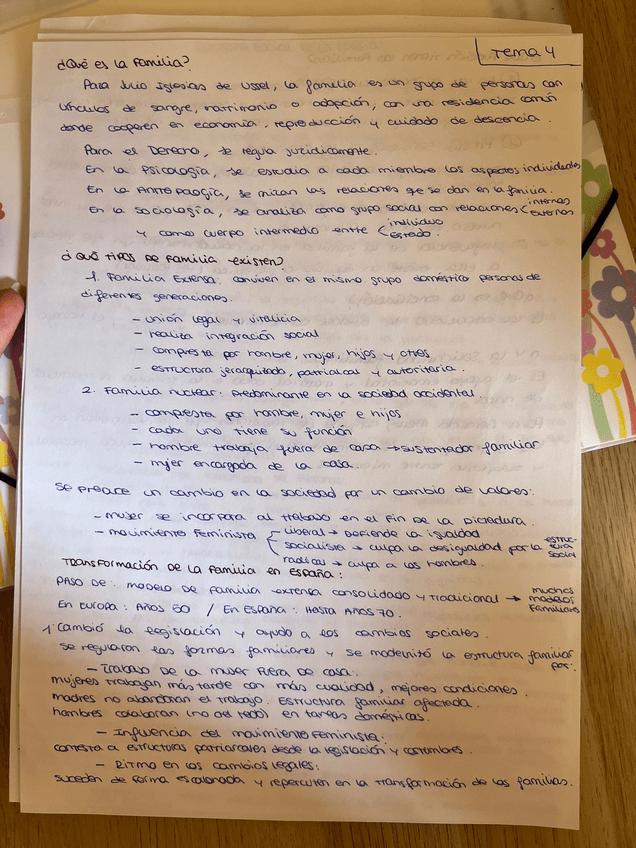 Tema 4
¿Qué es la familia?
Para Julio Iglesias de Ussel, la familia es un grupo de personas con
vínculos de sangre, matrimonio o adopción, con una residencia común
donde cooperen en economía, reproducción y cuidado de descencia.
Para el Derecho, se regula jurídicamente.
En la Psicología, se estudia a cada miembro los aspectos individuales
En la Antropología, se mizan las relaciones que se dan en la familia.
En la sociología, se analiza como grupo social con relaciones internas
externas
y como cuerpo intermedio entre individuo
estado.
¿Qué tipos de familia existen?
1. Familia Extensa: conviven en el mismo grupo doméstico personas de
diferentes generaciones.
- unión legal y vitalicia
- realiza integración social
- compuesta por hombre, mujer, hijos y otros
- estructura jerarquizada, patriarcal y autoritaria.
2. Familia nuclear: predominante en la sociedad occidental
- compuesta por hombre, mujer e hijos
- cada uno tiene su función
- hombre trabaja fuera de casa → sustentador familiar
- mujer encargada de la casa.
Se produce un cambio en la sociedad por un cambio de valores:
- mujer se incorpora al trabajo en el fin de la Dictadura.
- movimiento feminista liberal → defiende la igualdad
socialista → culpa la desigualdad por la estructura social
radical → culpa a los hombres.
Transformación de la familia en España:
Paso de: modelo de familia extensa consolidado y tradicional → muchos modelos familiares
En Europa: Años 50 / En España: hasta años 70.
1. Cambió la legislación y ayudó a los cambios sociales.
Se regularon las formas familiares y se modernizó la estructura familiar por:
- Trabajo de la mujer fuera de casa:
mujeres trabajan más tarde con más cualidad, mejores condiciones.
madres no abandonan el trabajo. Estructura familiar afectada.
hombres colaboran (no del todo) en tareas domésticas.
- Influencia del movimiento feminista:
contesta a estructuras patriarcales desde la legislación y costumbres.
- Ritmo en los cambios legales:
suceden de forma escalonada y repercuten en la transformación de las familias.